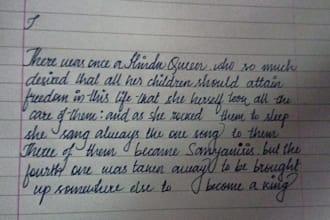 I
There was once a Hindu Queen, who so much
desired that all her children should attain
freedom in this life that she herself took all the
care of them: and as she rocked them to sleep
she sang always the one song to them
Three of them became Sanyaniis, but the
fourth one was taken away to be brought
up somewhere else to become a king